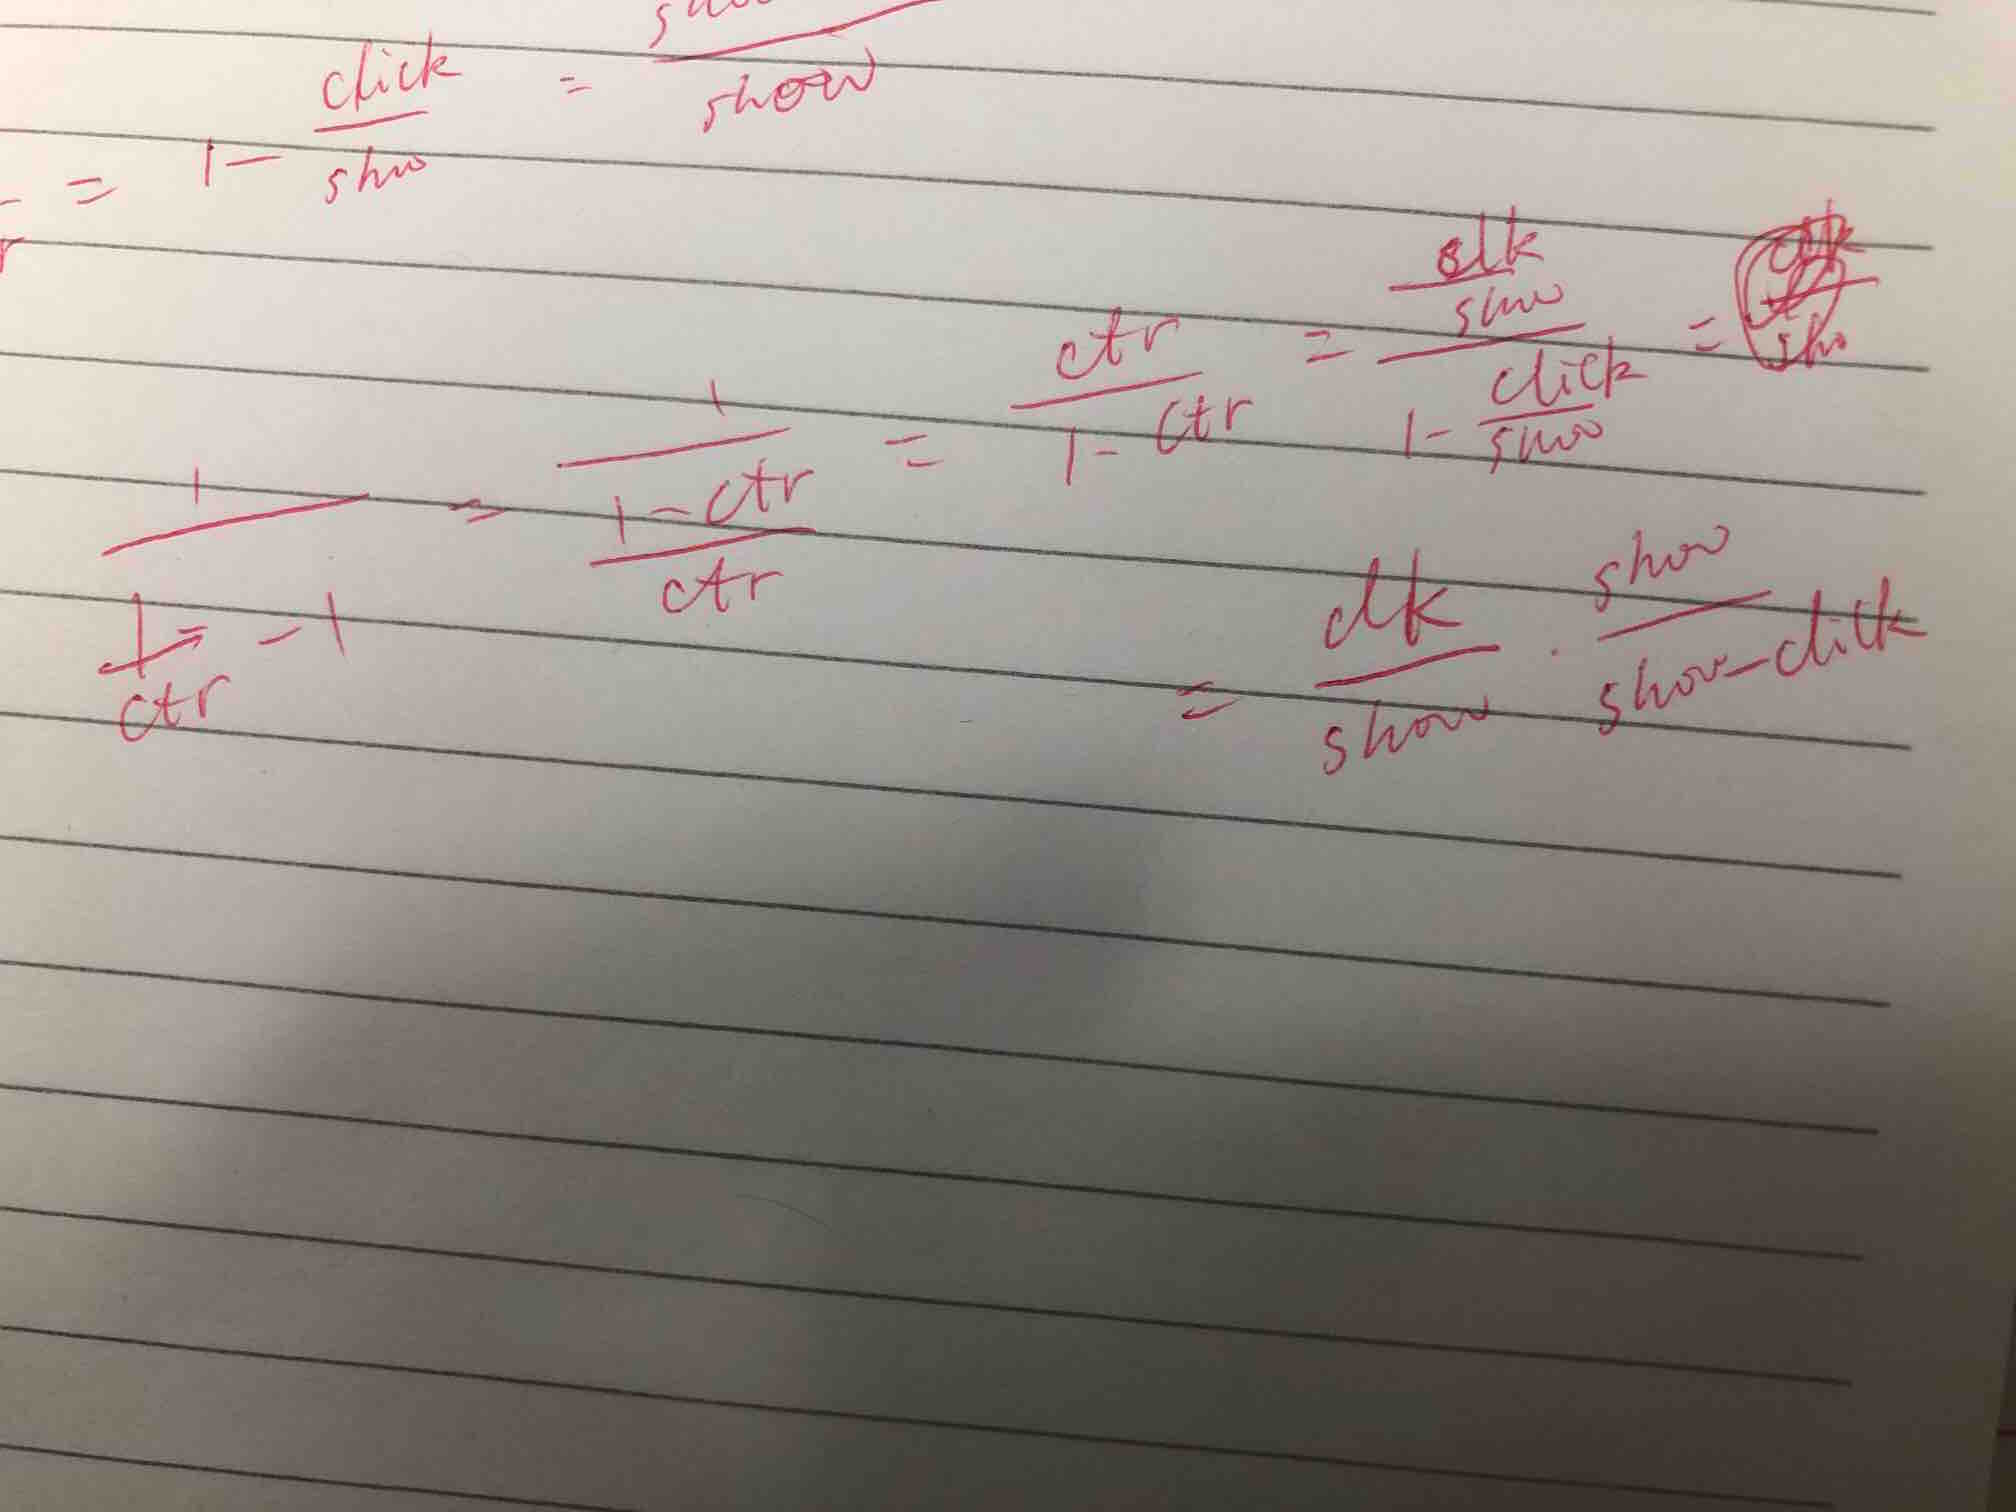 = 1 - click/sho = /show
1/(1/ctr - 1) = 1/((1-ctr)/ctr) = ctr/(1-ctr) = (clk/show)/(1 - click/show) =
= clk/show · show/(show-click)